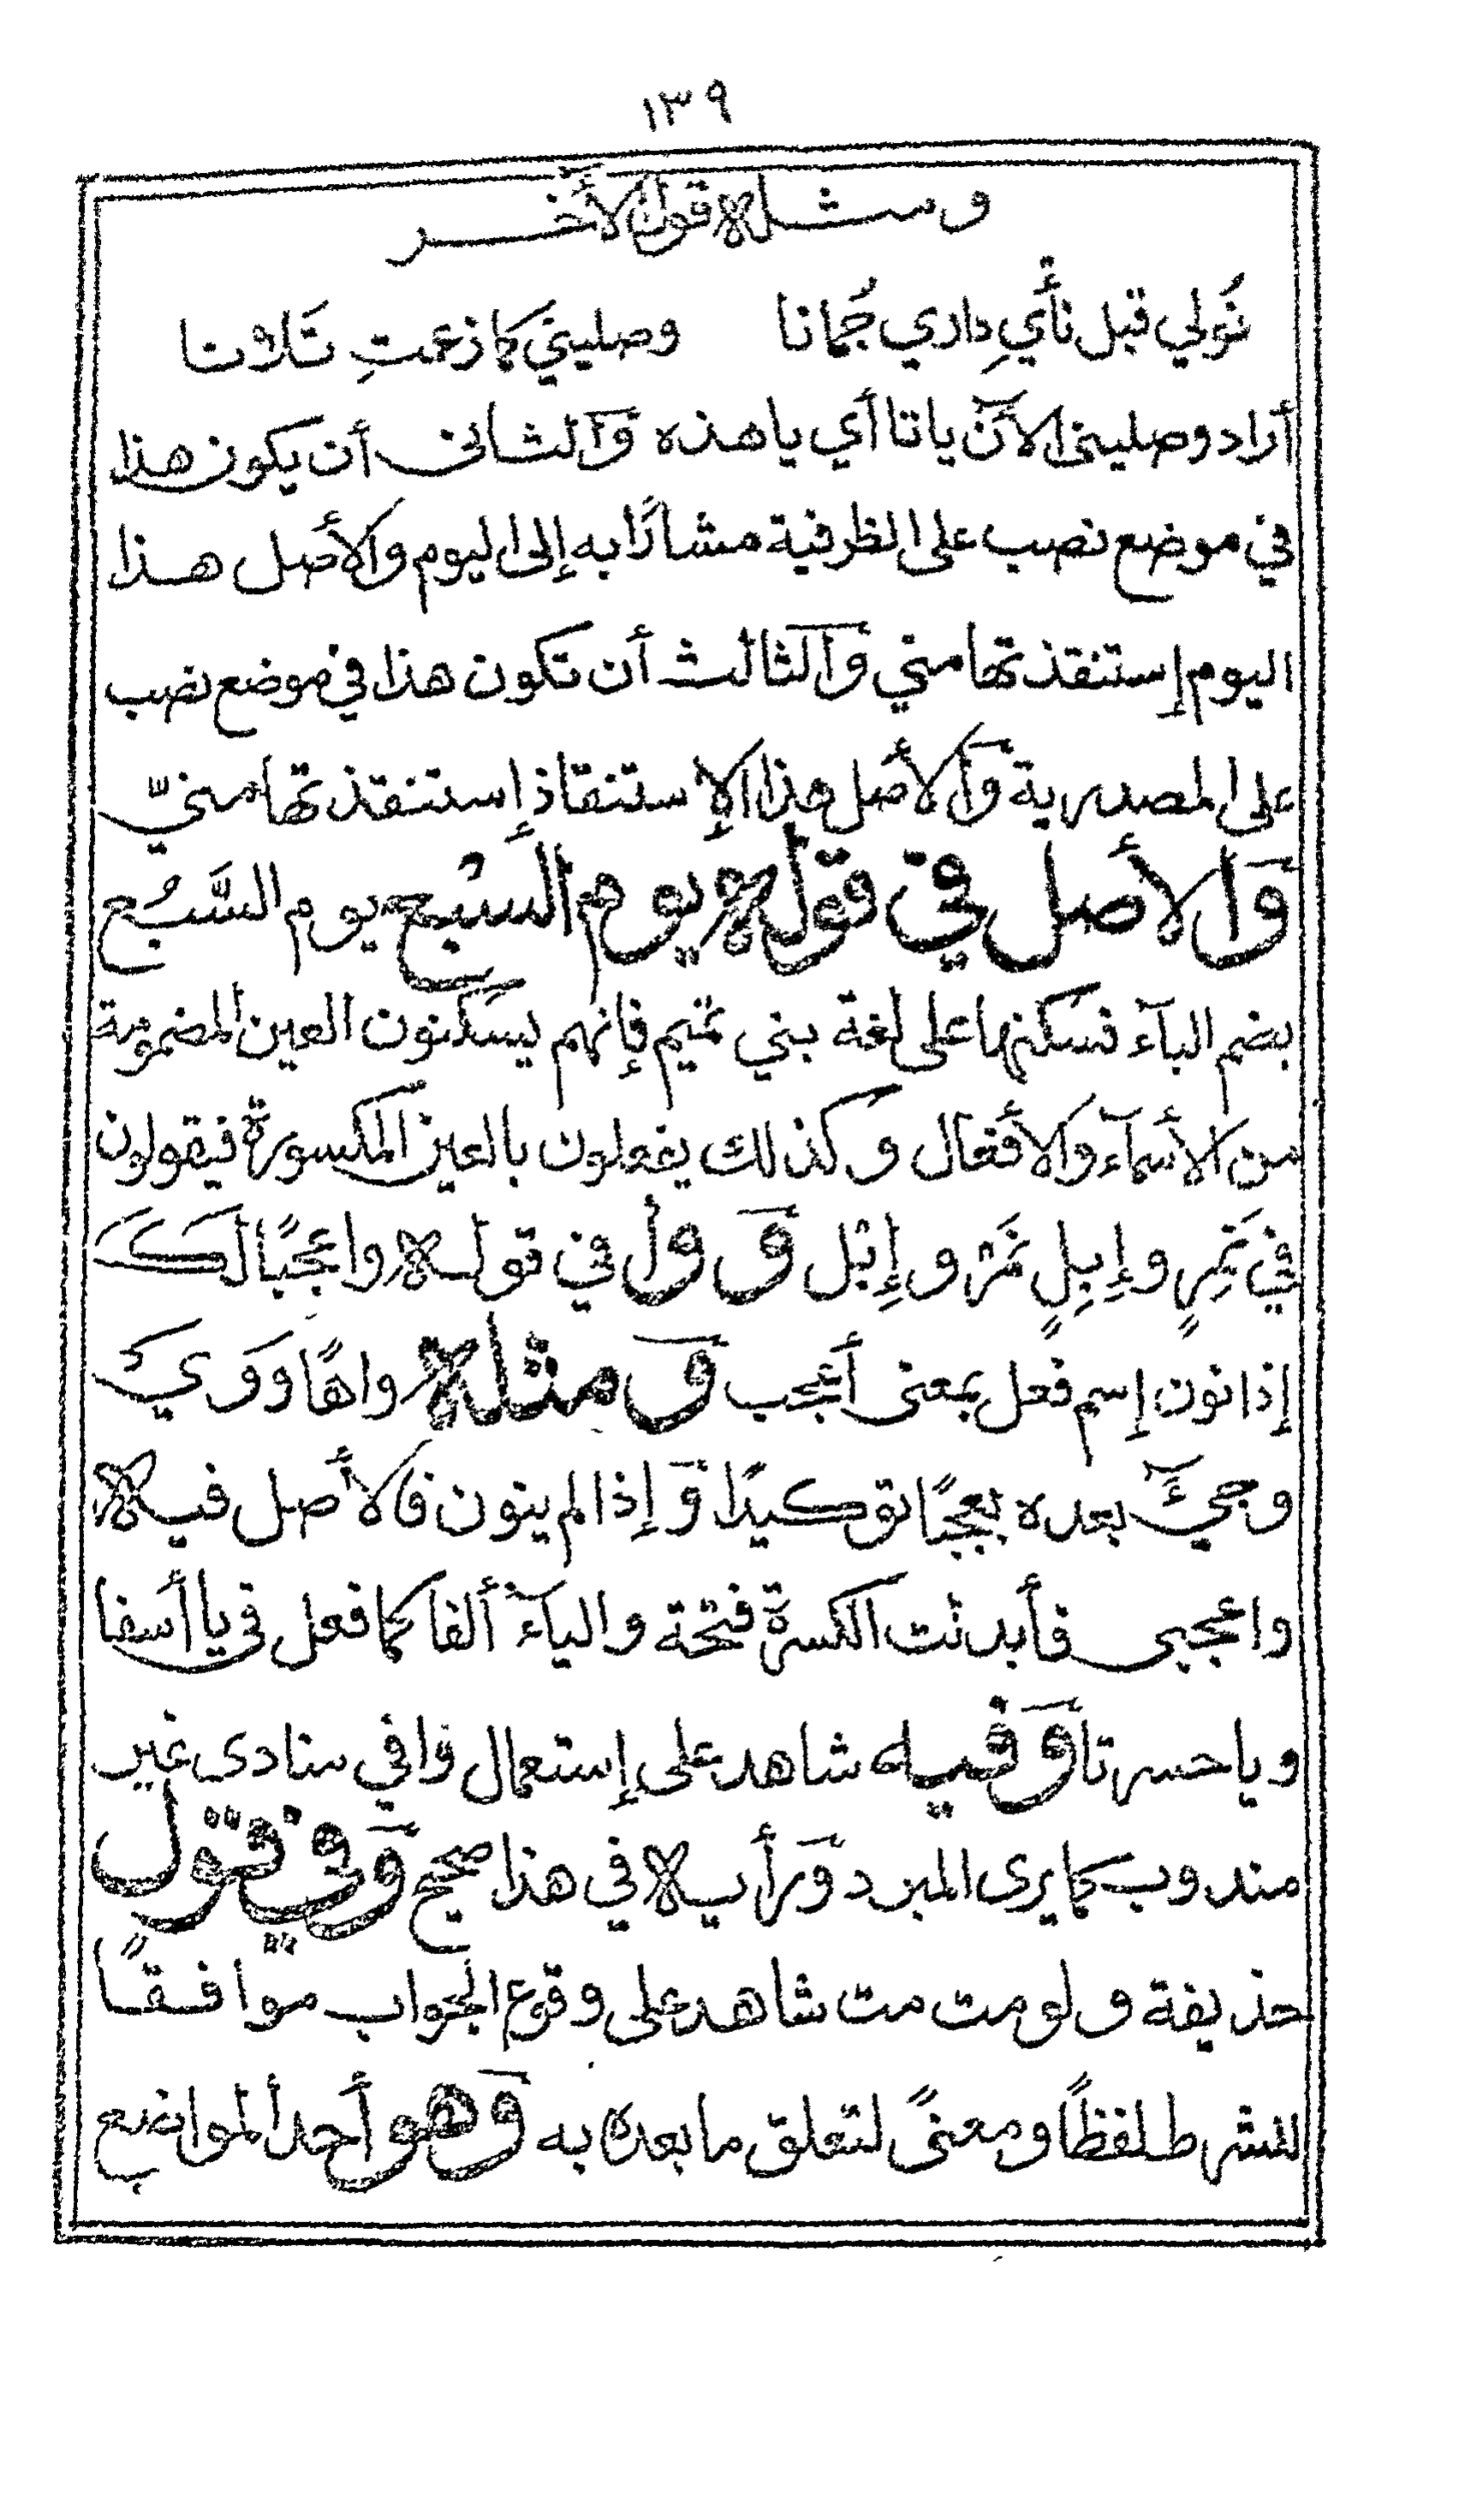 ١٣٩
ومثله قول الأخر
نُولي قبل نأيِ داري جُمانا وصليني كما زعمتِ تَلاتا
أراد وصليني الآن ياتا أي يا هذه والثاني أن يكون هذا
في موضع نصب على الظرفية مشارًا به إلى اليوم والأصل هذا
اليوم إستنقذتها مني والثالث أن تكون هذا في موضع نصب
على المصدرية والأصل هذا الإستنقاذ إستنقذتها منيّ
والأصل في قوله يوم السبُع يوم السَّبُع
بضم البآء فسكنها على لغة بني تميم فإنهم يسكنون العين المضمومة
من الأسمآء والأفعال وكذلك يفعلون بالعين المكسورة فيقولون
في تَمِرٍ وإِبِلٍ تَمْر وإِبْل و وا في قوله واعجبًا لك
إذا نون إسم فعل بمعنى أعجب ومثله واهًا ووَيْ
وجيءَ بعده بعجبًا توكيدًا وإذا لم ينون فالأصل فيه
واعجبي فأبدلت الكسرة فتحة واليآء ألفا كما فعل في يا أسفا
وياحسرتا وفيه شاهد على إستعمال وا في منادى غير
مندوب كما يرى المبرد ورأيه في هذا صحيح وفي قول
حذيفة ولو مت مت شاهد على وقوع الجواب موافقًا
للشرط لفظًا ومعنىً لتعلق ما بعده به وهو أحد المواضع